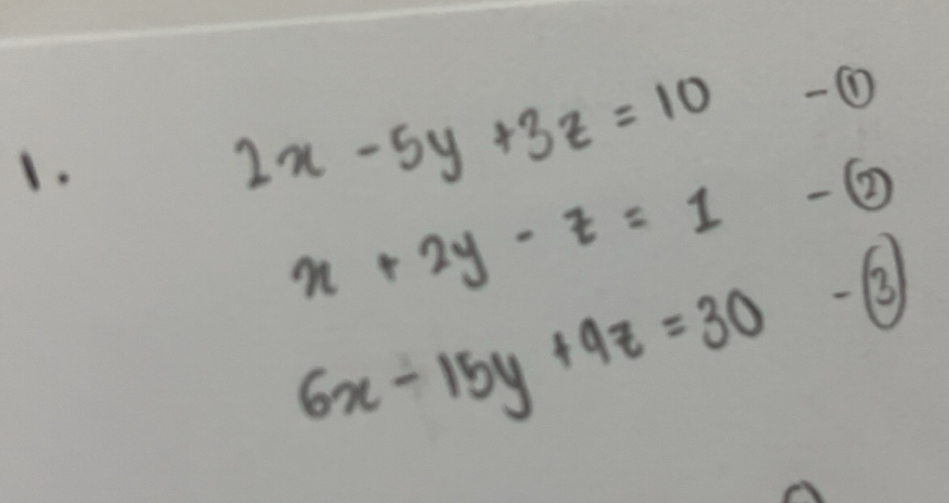 1. 2x - 5y + 3z = 10 - ①
x + 2y - z = 1 - ②
6x - 15y + 9z = 30 - ③